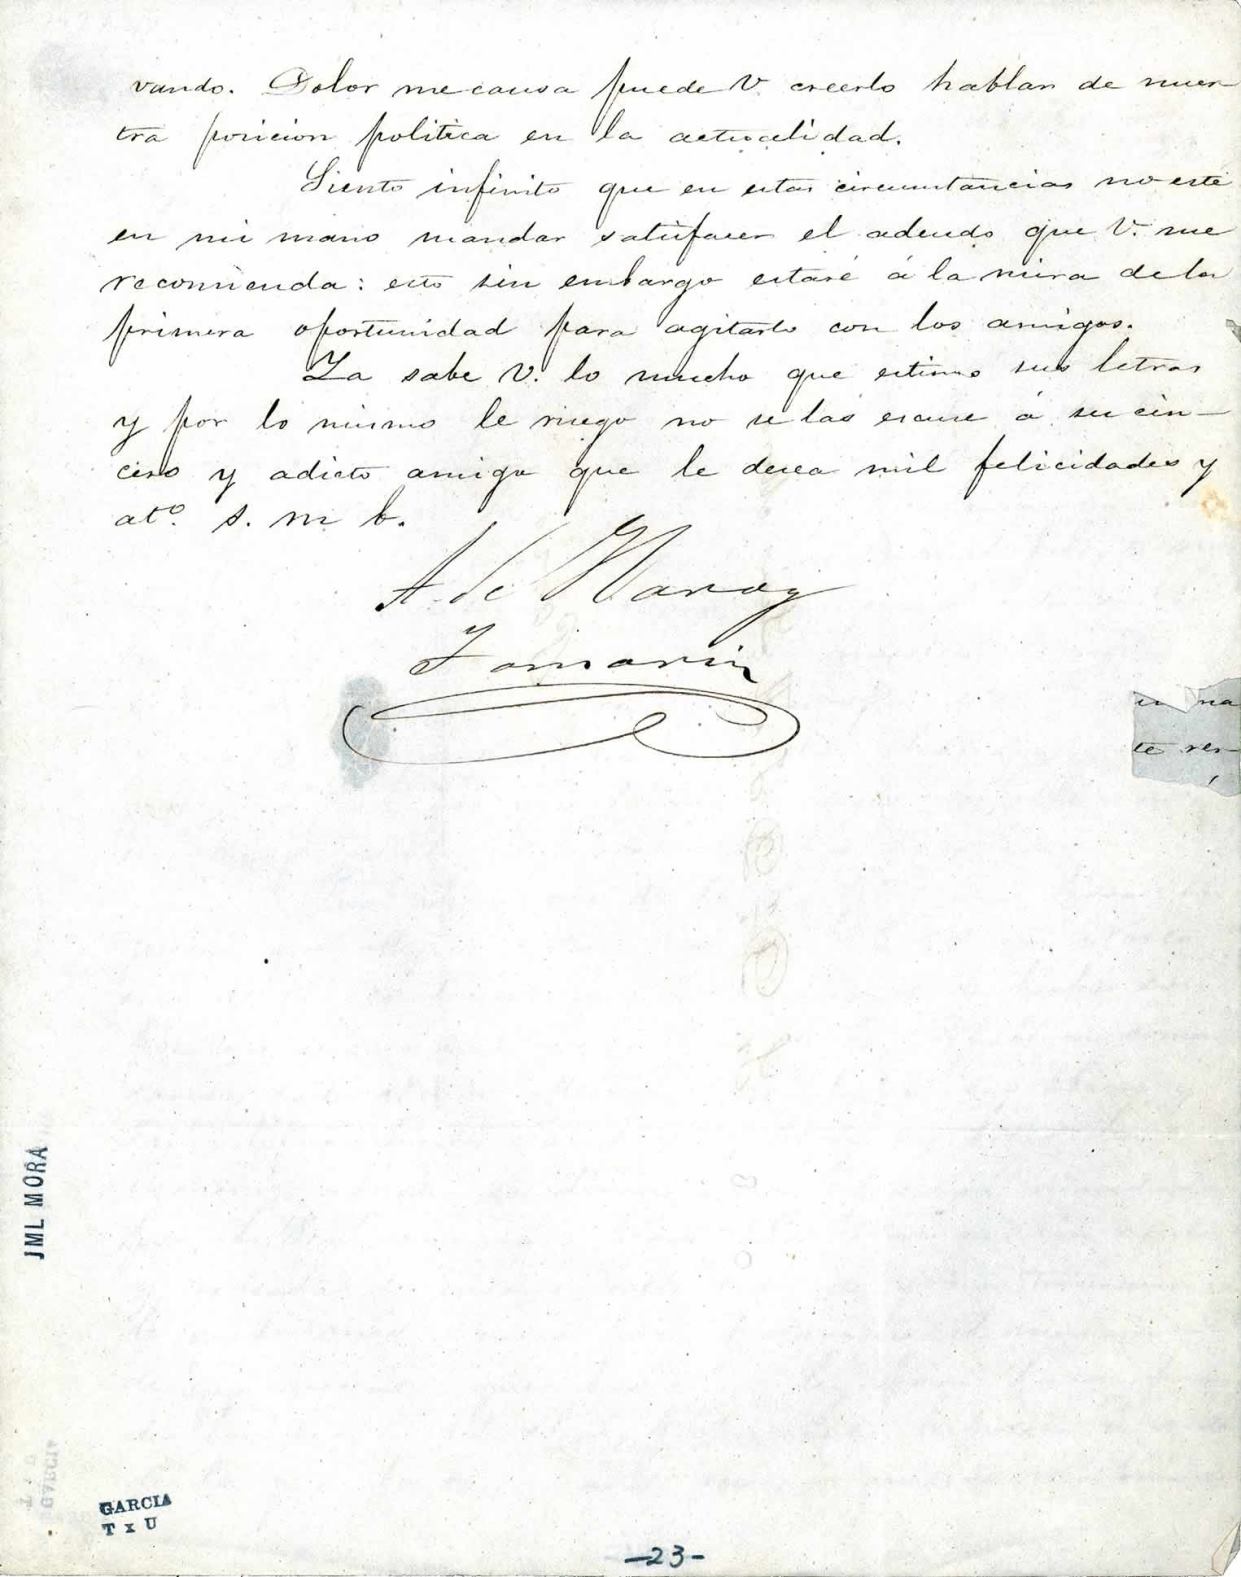 vando. Dolor me causa puede V. creerlo hablar de nues
tra posicion politica en la actualidad.
Siento infinito que en estas circunstancias no esté
en mi mano mandar satisfacer el adeudo que V. me
recomienda: esto sin embargo estaré á la mira de la
primera oportunidad para agitarlo con los amigos.
Ya sabe V. lo mucho que estimo sus letras
y por lo mismo le ruego no se las escuse á su cin-
cero y adicto amigo que le desea mil felicidades y
at.º s. m b.
A. de Haro y
Tamariz
una
te res-
JML MORA
GARCIA
T x U
-23-